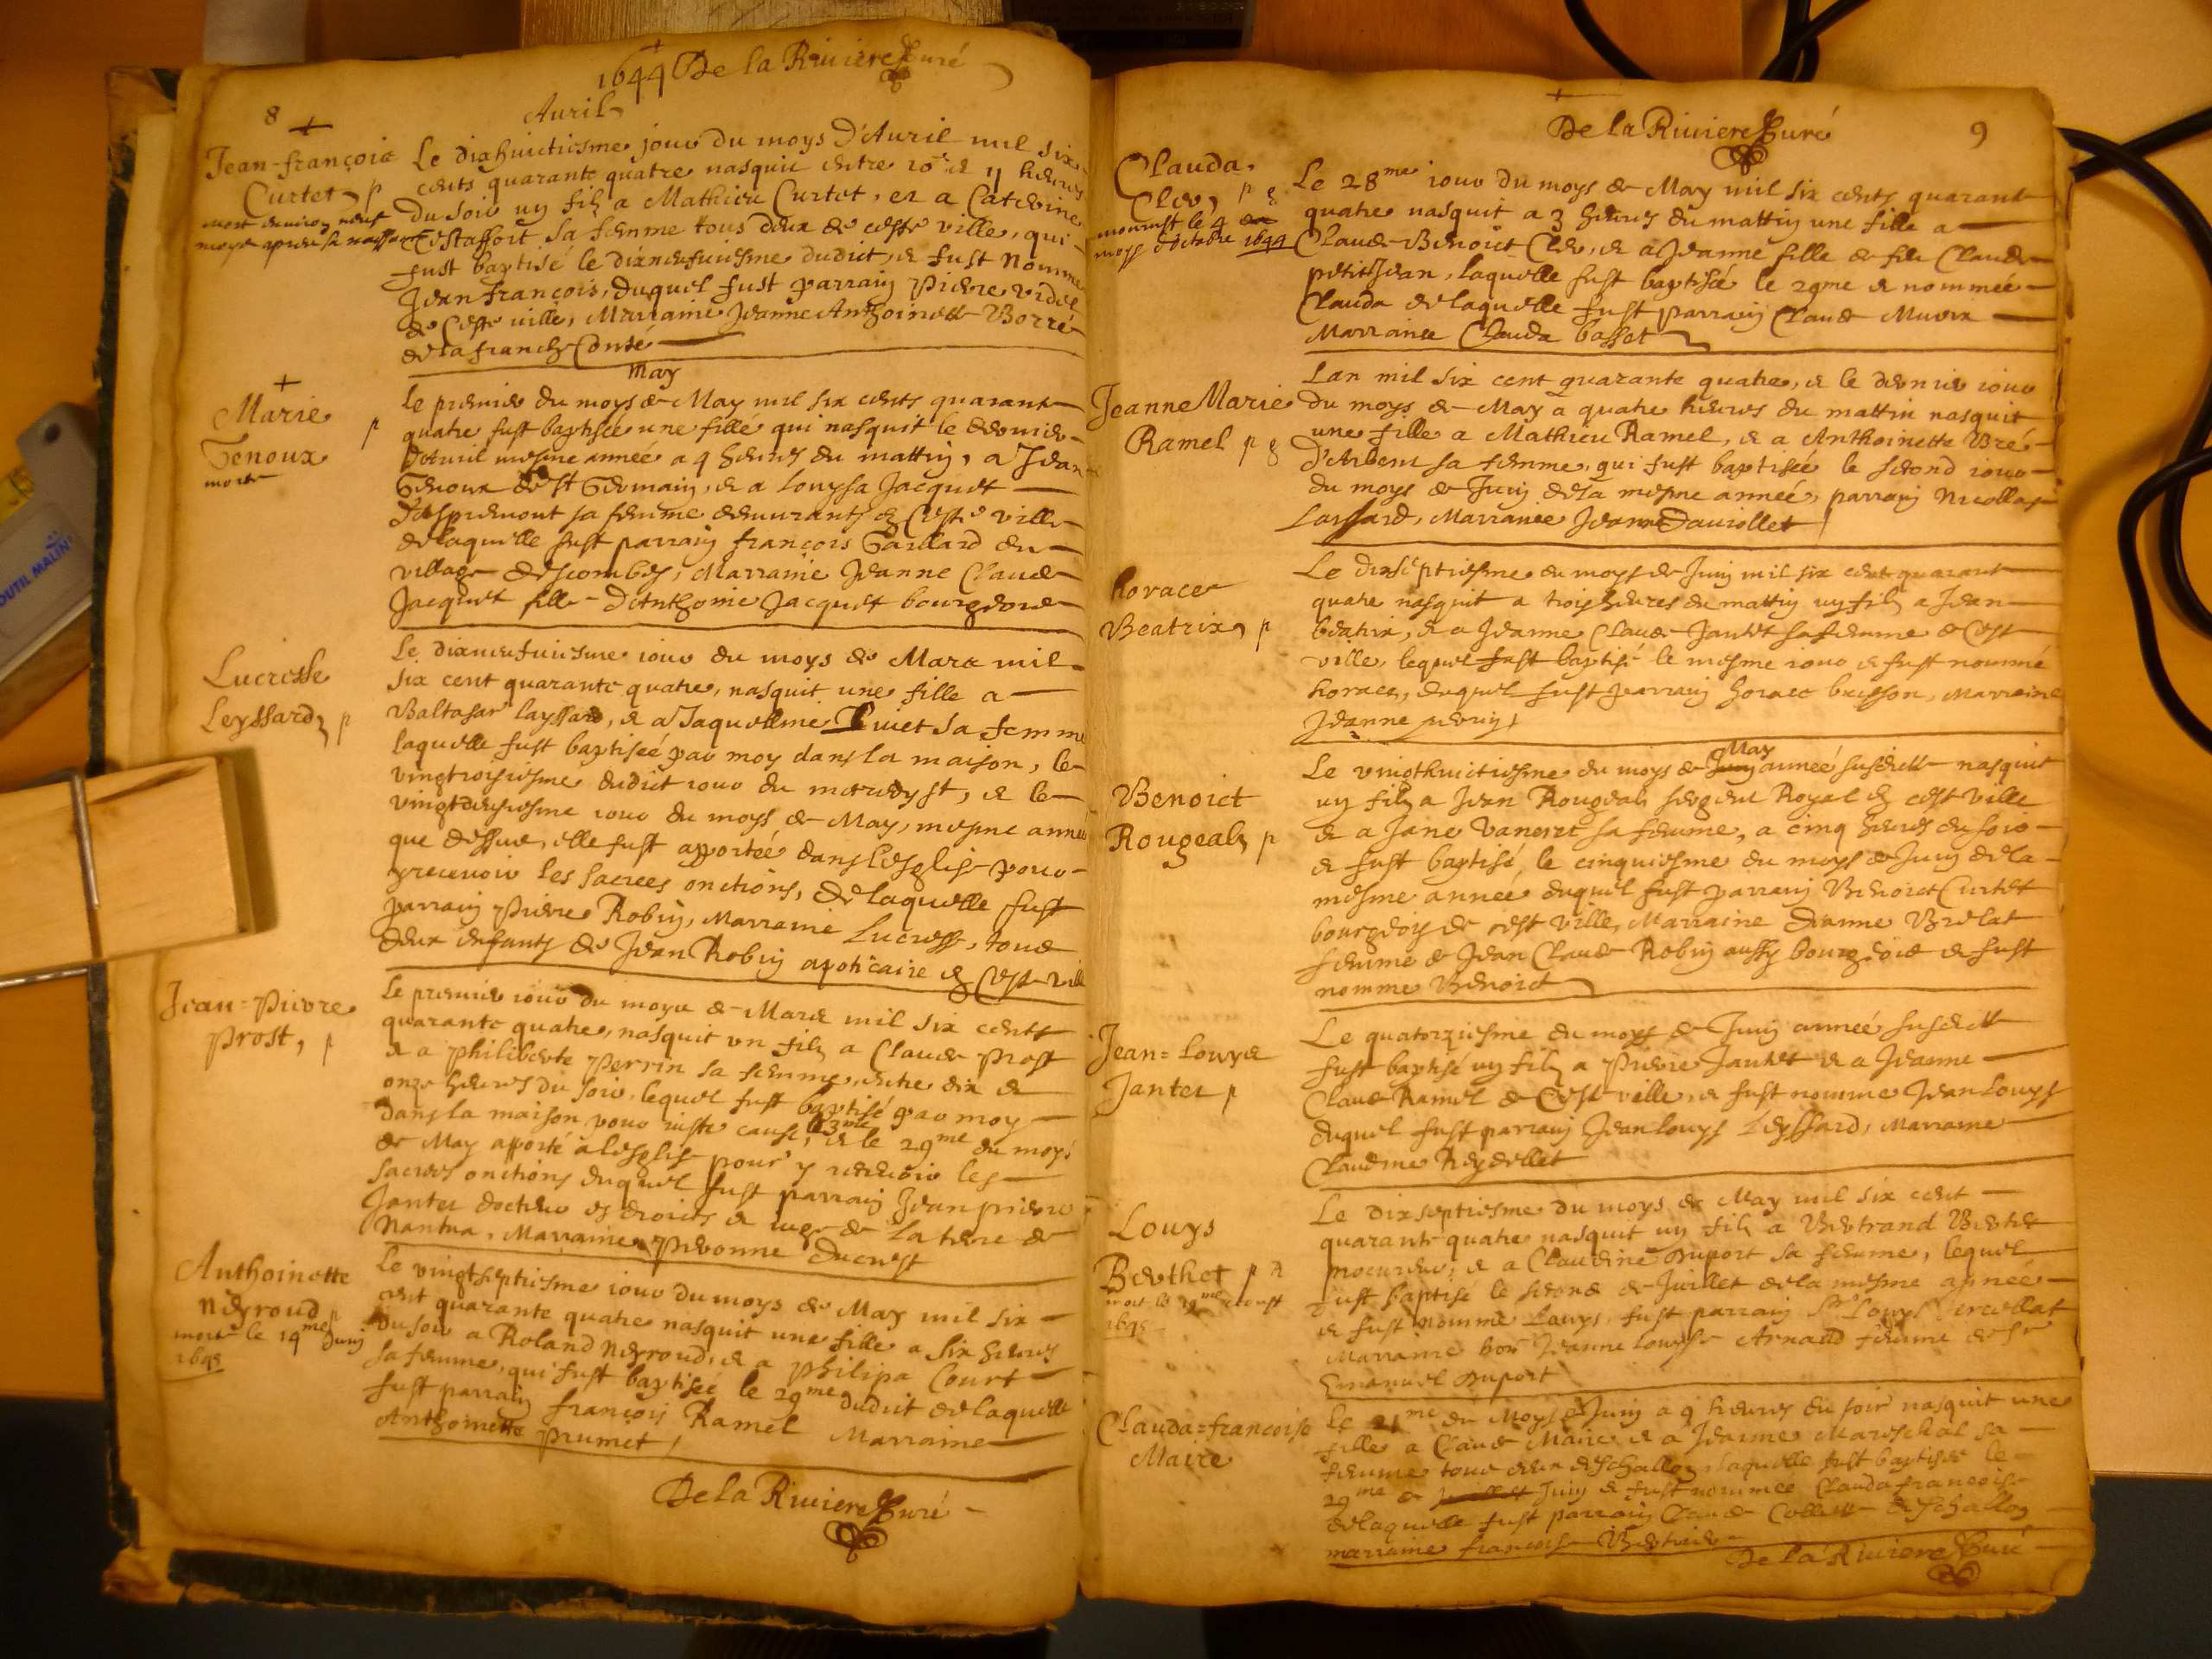 1644 De la Riviere Curé
8
Avril
Jean-françois
Curtet p
mort environ neuf
moys apres sa naissance
Le dixhuictiesme jour du moys d'Avril mil six
cents quarante quatre nasquit entre 10 et 11 heures
du soir un filz a Mathieu Curtet, et a Caterine
Estaffort sa femme tous deux de ceste ville, qui
fust baptisé le dixneufuiesme dudict, et fust nommé
Jean francois, duquel fust parrain Pierre Videl
de Ceste ville, Marraine Jeanne Anthoinette Borré
de la franche Conté
May
Marie
Genoux p
morte
Le premier du moys de May mil six cents quarante
quatre fust baptisée une fille qui nasquit le dernier
d'Avril mesme année a 4 heures du mattin, a Jean
Genoux de St Germain, et a Louysa Jacquet
d'Aspremont sa femme demeurants en Ceste ville
de laquelle fust parrain françois Gaillard du
village descombes, Marraine Jeanne Claude
Jacquet fille d'Anthoine Jacquet bourgeois
Lucresse
Leyssard p
Le dixneufuiesme iour du moys de Mars mil
six cent quarante quatre, nasquit une fille a
Baltasar layssard, et a Jaquelline Puvet sa femme
laquelle fust baptiseé par moy dans la maison, le
vingtroisiesme dudict iour du mercredy st, et le
vingtdeusiesme iour du moys de May, mesme anneé
que dessus, elle fust apporteé dans l'esglise pour
y recevoir les sacrees onctions, de laquelle fust
parrain Pierre Robin, Marraine Lucresse, tous
deux enfants de Jean Robin apoticaire en Ceste ville
Jean=Pierre
Prost, p
Le premier iour du moys de Mars mil six cents
quarante quatre, nasquit un filz a Claude Prost
et a Philiberte Perrin sa femme, entre dix et
onze heures du soir, lequel fust baptisé par moy
dans la maison pour iuste cause, le 3me et le 29me du moys
de May apporté a lesglise pour y recevoir les
sacrees onctions duquel fust parrain Jean pierre
Jantet docteur es droicts et iuge de la terre de
Nantua, Marraine Pieronne Ducrest
Anthoinette
Neyroud p
morte le 14me Juin
1645
Le vingtseptiesme iour du moys de May mil six
cent quarante quatre nasquit une fille a six heures
du soir a Roland Neyroud, et a Philipa Court
sa femme, qui fust baptiseé le 29me dudict de laquelle
fust parrain françois Ramel Marraine
Anthoinette Prumet
De la Riviere Curé
De la Riviere Curé
9
Clauda
Cler, p
mourust le 4
moys d'octobre 1644
Le 28me iour du moys de May mil six cents quarante
quatre nasquit a 3 heures du mattin une fille a
Claude Benoict Cler, et a Jeanne fille de feu Claude
petitJean, laquelle fust baptiseé le 29me et nommeé
Clauda de laquelle fust parrain Claude
Marraine Clauda basset
Jeanne Marie
Ramel p
Lan mil six cent quarante quatre, et le dernier iour
du moys de May a quatre heures du mattin nasquit
une fille a Mathieu Ramel, et a Anthoinette Bré
d'Arbent sa femme, qui fust baptiseé le second iour
du moys de Juin de la mesme anneé, parrain Nicollas
Lassard, Marraine Jeanne Daviollet
horace
Beatrix, p
Le dixseptiesme du moys de Juin mil six cent quarante
quatre nasquit a trois heures du mattin un filz a Jean
beatrix, et a Jeanne Claude Jantet sa femme de Ceste
ville, lequel fust baptisé le mesme iour et fust nommé
horace, duquel fust parrain horace buisson, Marraine
Jeanne perrin
Benoict
Rougeals p
Le vingthuictiesme du moys de Juin May anneé susdicte nasquit
un filz a Jean Rougeals sergent Royal en ceste ville
et a Jane Vaneret sa femme, a cinq heures du soir
et fust baptisé, le cinquiesme du moys de Juin de la
mesme anneé duquel fust parrain Benoict Curtet
bourgeois de ceste ville, Marraine dianne Brelat
femme de Jean Claude Robin aussy bourgeois et fust
nomme Benoict
Jean=Louys
Jantet p
Le quatorziesme du moys de Juin anneé susdicte
fust baptisé un filz a Pierre Jantet et a Jeanne
Claude Ramel de Ceste ville, et fust nommé Jean Louys
duquel fust parrain Jean louys Leyssard, Marraine
Claudine Reydellet
Louys
Berthet p
mort le
1645
Le dixseptiesme du moys de May mil six cent
quarante quatre nasquit un filz a Bertrand Berthet
procureur, et a Claudine Duport sa femme, lequel
fust baptisé le second de Juillet de la mesme anneé
et fust nomme Louys, fust parrain Sr Louys
Marraine Jeanne Louyse Arnaud femme de Sr
Emanuel Duport
Clauda=francoise
Maire
Le 21me du Moys de Juin a 9 heures du soir nasquit une
fille a Claude Maire et a Jeanne Mareschal sa
femme tous deux deschallon, laquelle fust baptisée le
29me de Juillet Juin et fust nommée Clauda francoise
de laquelle fust parrain Claude Collet deschallon
marraine francoise
De la Riviere Curé
OUTIL MALIN